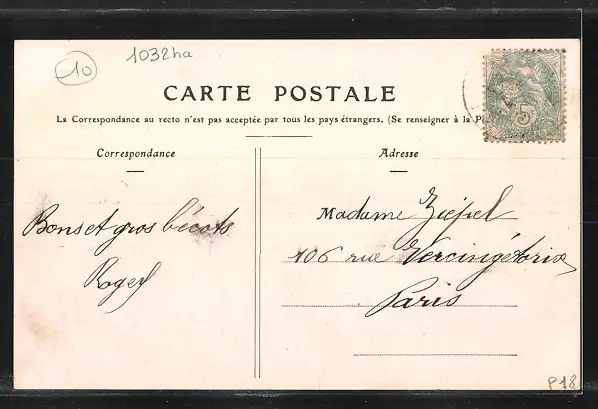 10
1032ha
CARTE POSTALE
La Correspondance au recto n'est pas acceptée par tous les pays étrangers. (Se renseigner à la P
Correspondance
Adresse
Bons et gros bécots
Roger
Madame
106 rue Vercingétorix
Paris
5
P18